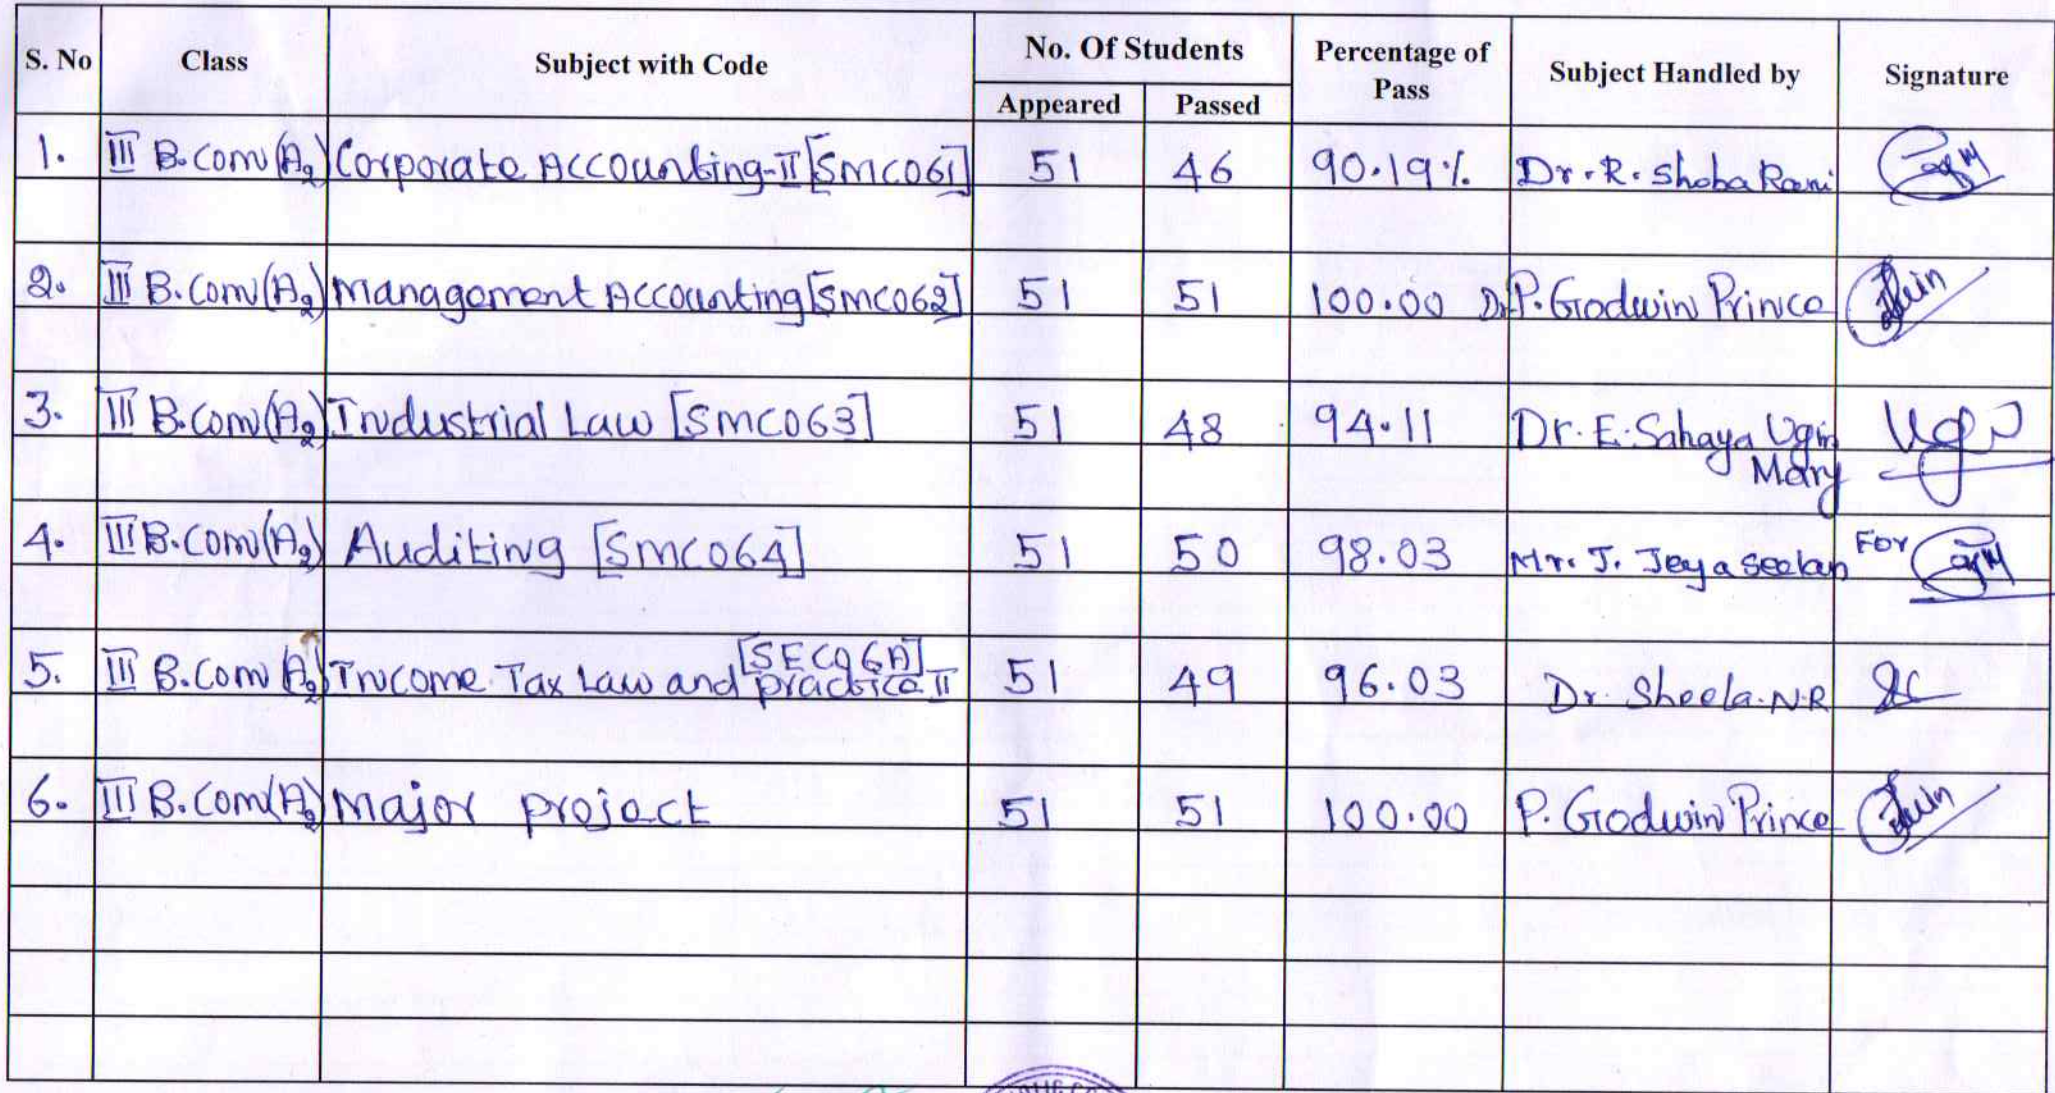 S. No Class Subject with Code No. Of Students Percentage of Pass Subject Handled by Signature
Appeared Passed
1. III B.Com(A2) Corporate Accounting-II [SMCO61] 51 46 90.19% Dr. R. Shoba Rani
2. III B.Com(A2) Management Accounting [SMCO62] 51 51 100.00 Dr. P. Godwin Prince
3. III B.Com(A2) Industrial Law [SMCO63] 51 48 94.11 Dr. E. Sahaya Ugin
Mary
4. III B.Com(A2) Auditing [SMCO64] 51 50 98.03 Mr. J. Jeyaseelan For
[SECO6A]
5. III B.Com(A2) Income Tax Law and practice II 51 49 96.03 Dr. Sheela. N.R
6. III B.Com(A2) Major project 51 51 100.00 P. Godwin Prince